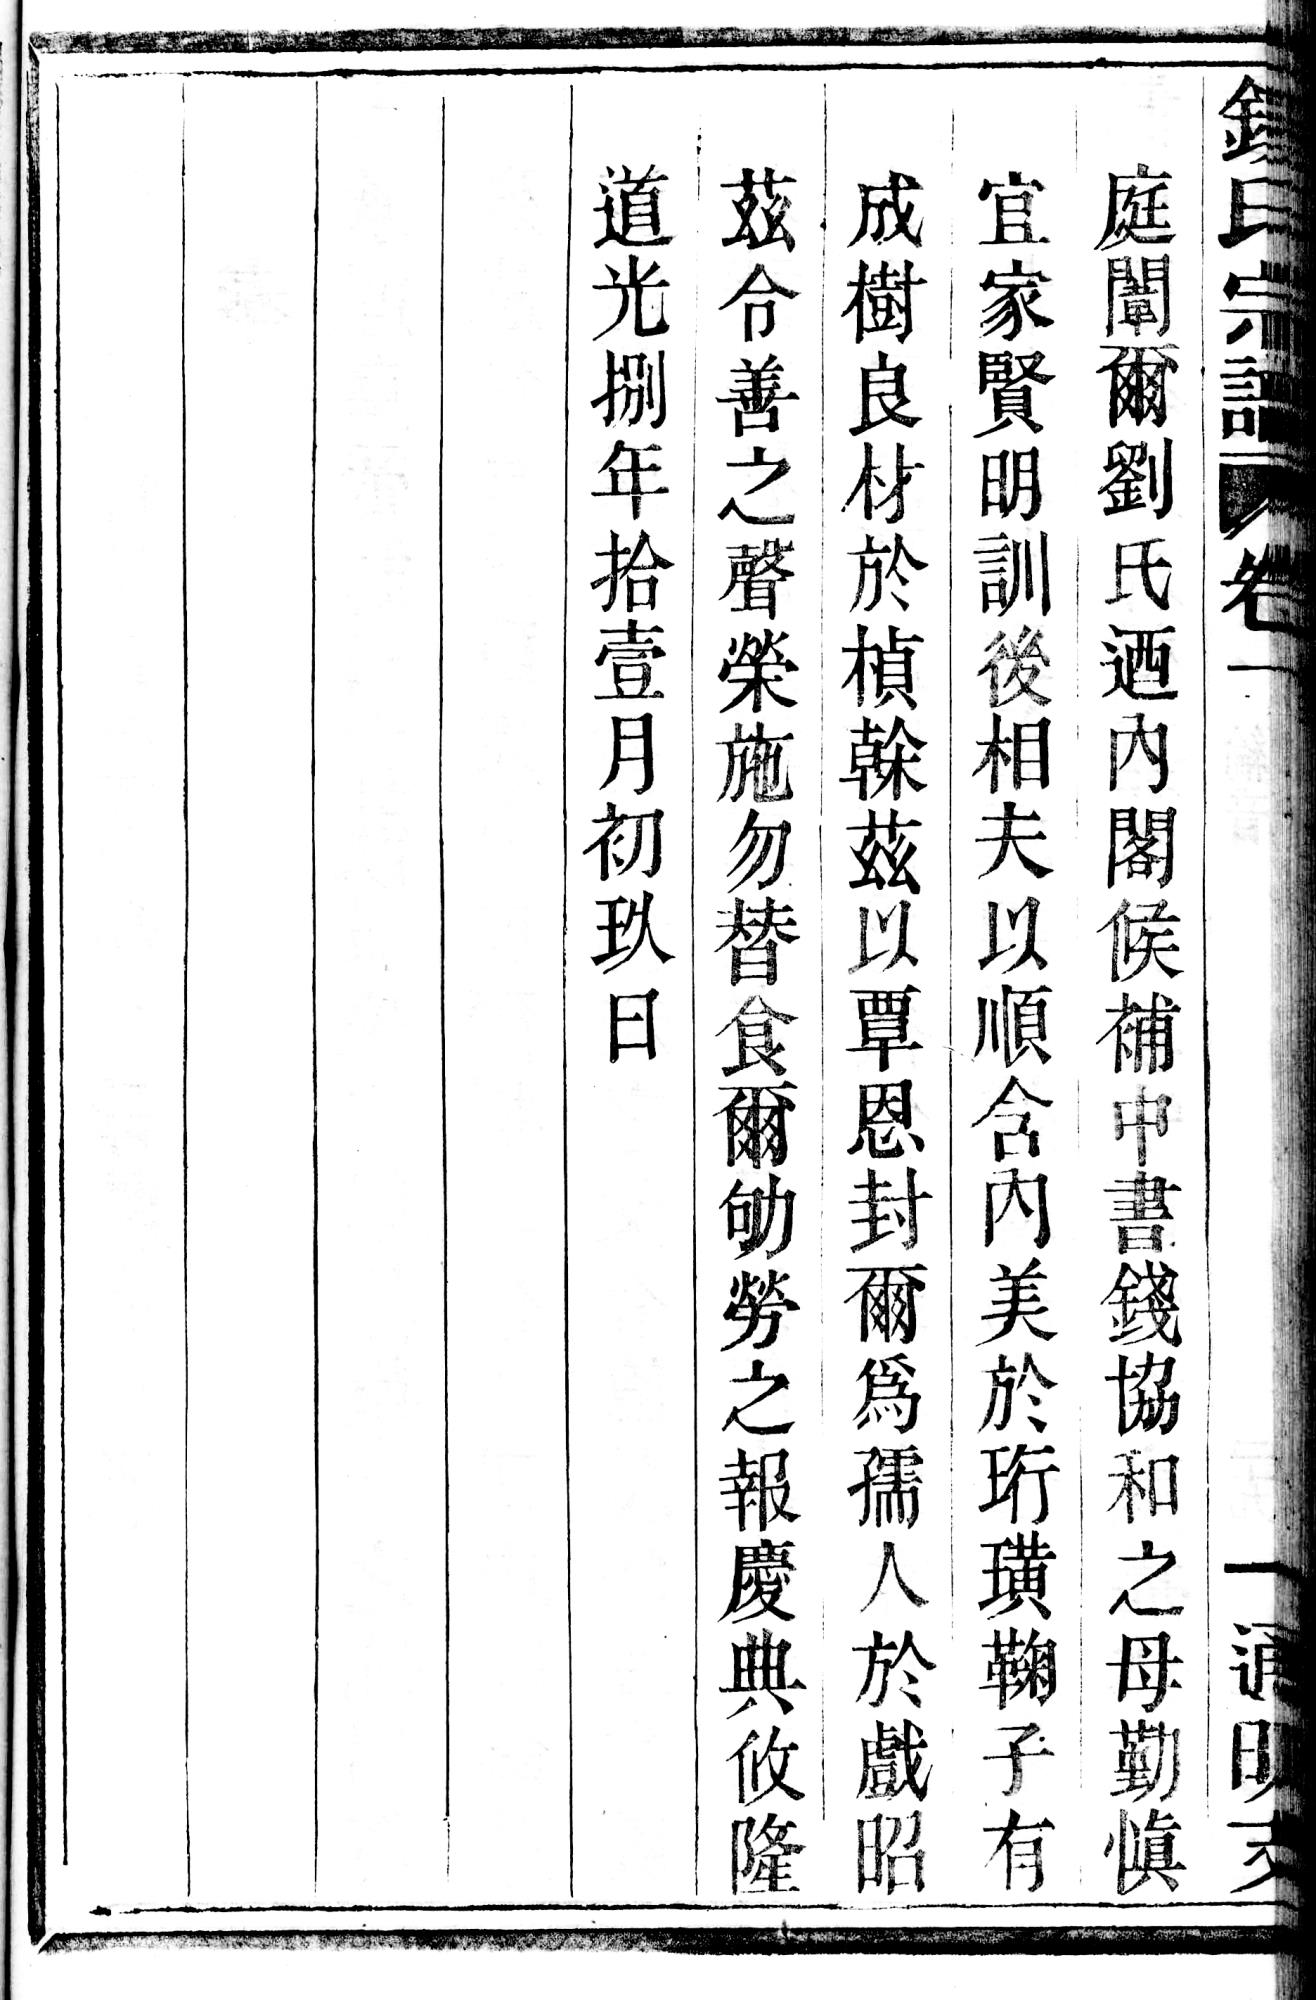 錢氏宗譜 卷一 一 通明支
庭闈爾劉氏迺內閣侯補中書錢協和之母勤慎
宜家賢明訓後相夫以順含內美於珩璜鞠子有
成樹良材於楨榦茲以覃恩封爾爲孺人於戲昭
茲令善之聲榮施勿替食爾劬勞之報慶典攸隆
道光捌年拾壹月初玖日